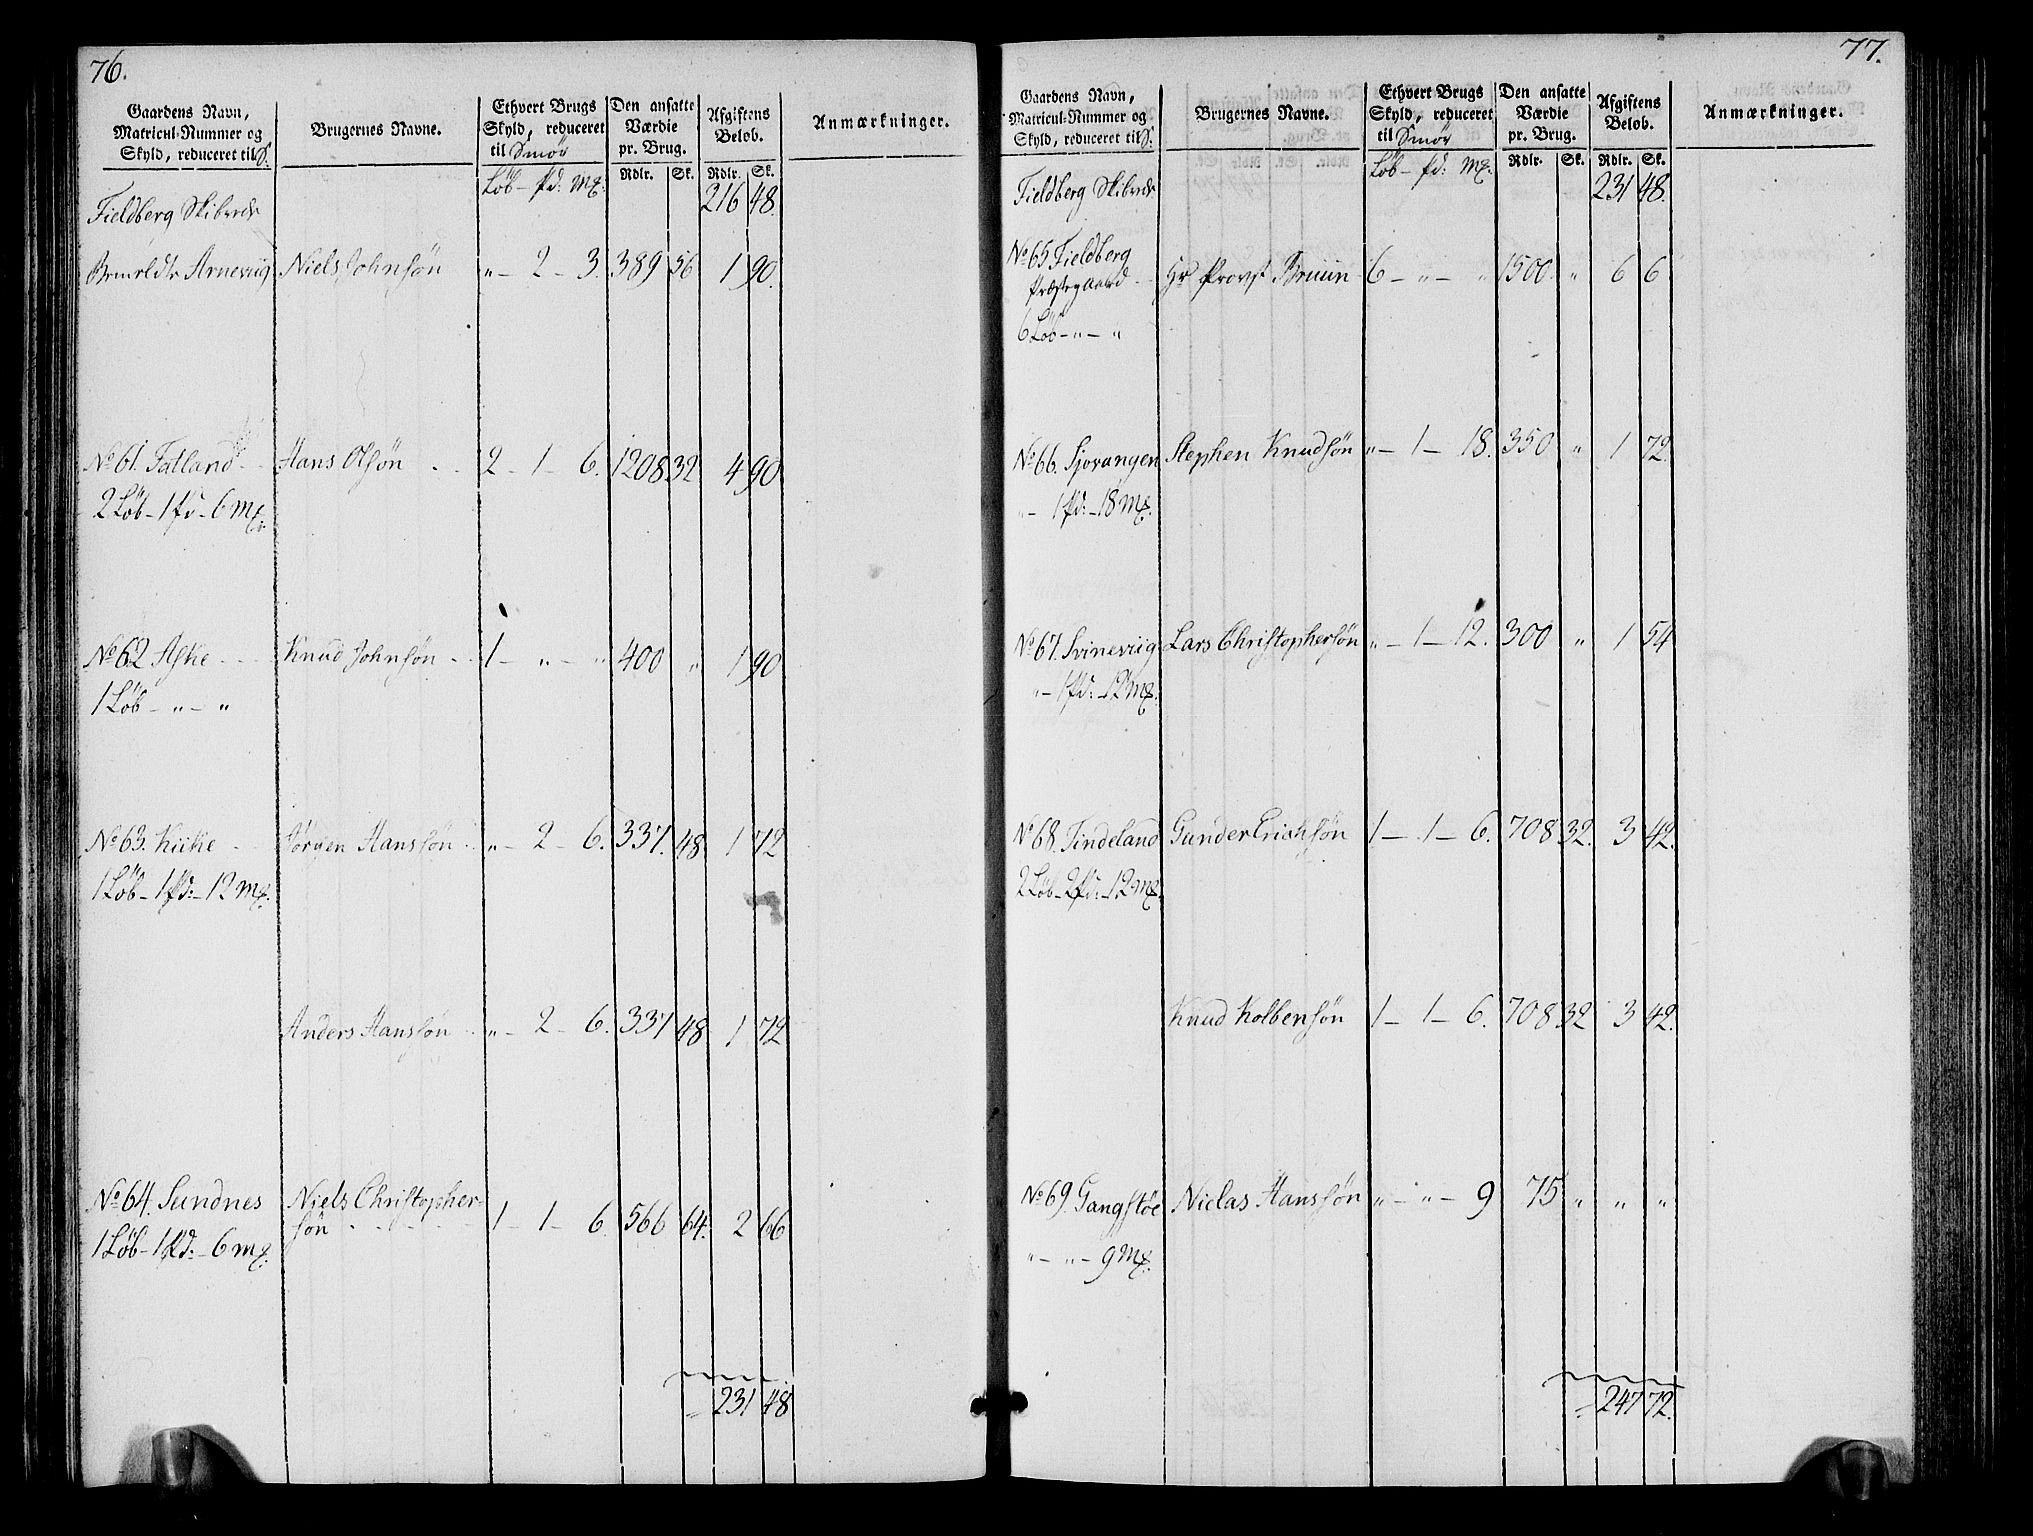 76.
Gaardens Navn,
Matricul-Nummer og
Skyld, reduceret til S.
Brugernes Navne.
Ethvert Brugs
Skyld, reduceret
til Smör
Den ansatte
Værdie
pr. Brug.
Afgiftens
Beløb.
Anmærkninger.
Löb - Pd: Mg:
Rdlr. Sk. Rdlr. Sk.
Fieldberg Skibrede 216 48.
Arneviig Niels Johnsön " - 2 - 3. 389 56 1 90.
No 61. Tatland Hans Olsön 2 - 1 - 6. 1208 32 4 90
2 Löb - 1 Pd - 6 Mg:
No 62 Aske Knud Johnsön 1 - " - " 400 " 1 90
1 Löb - " - "
No 63. Kiike Jörgen Hanssön " - 2 - 6. 337. 48 1 72
1 Löb - 1 Pd: - 12 Mg.
Anders Hanssön " - 2 - 6. 337 48 1 72
No 64. Sundnes Niels Christopher-
sön 1 - 1 - 6. 566 64. 2 66
1 Löb - 1 Pd: - 6 Mg.
231 48
77.
Gaardens Navn,
Matricul-Nummer og
Skyld, reduceret til S.
Brugernes Navne.
Ethvert Brugs
Skyld, reduceret
til Smör
Den ansatte
Værdie
pr. Brug.
Afgiftens
Beløb.
Anmærkninger.
Löb - Pd: Mg.
Rdlr. Sk. Rdlr. Sk.
Fieldberg Skibrede 231 48.
No 65 Fieldberg
Præstegaard Hr Provst Bruun 6 - " - " 1500. " 6 6
6 Löb - " - "
No 66. Sjovangen Stephen Knudsön " - 1 - 18. 350 " 1 72.
" - 1 Pd: - 18 Mg.
No 67. Svineviig Lars Christophersön " - 1 - 12. 300 " 1 54
" - 1 Pd: - 12 Mg.
No 68. Tindeland Gunder Erichsön 1 - 1 - 6. 708 32. 3 42.
2 Löb - 2 Pd: - 12 Mg.
Knud Kolbensön 1 - 1 - 6. 708 32 3 42.
No 69. Gangstöe Niclas Hanssön " - " - 9 75 " " "
" - " - 9 Mg.
247 72.